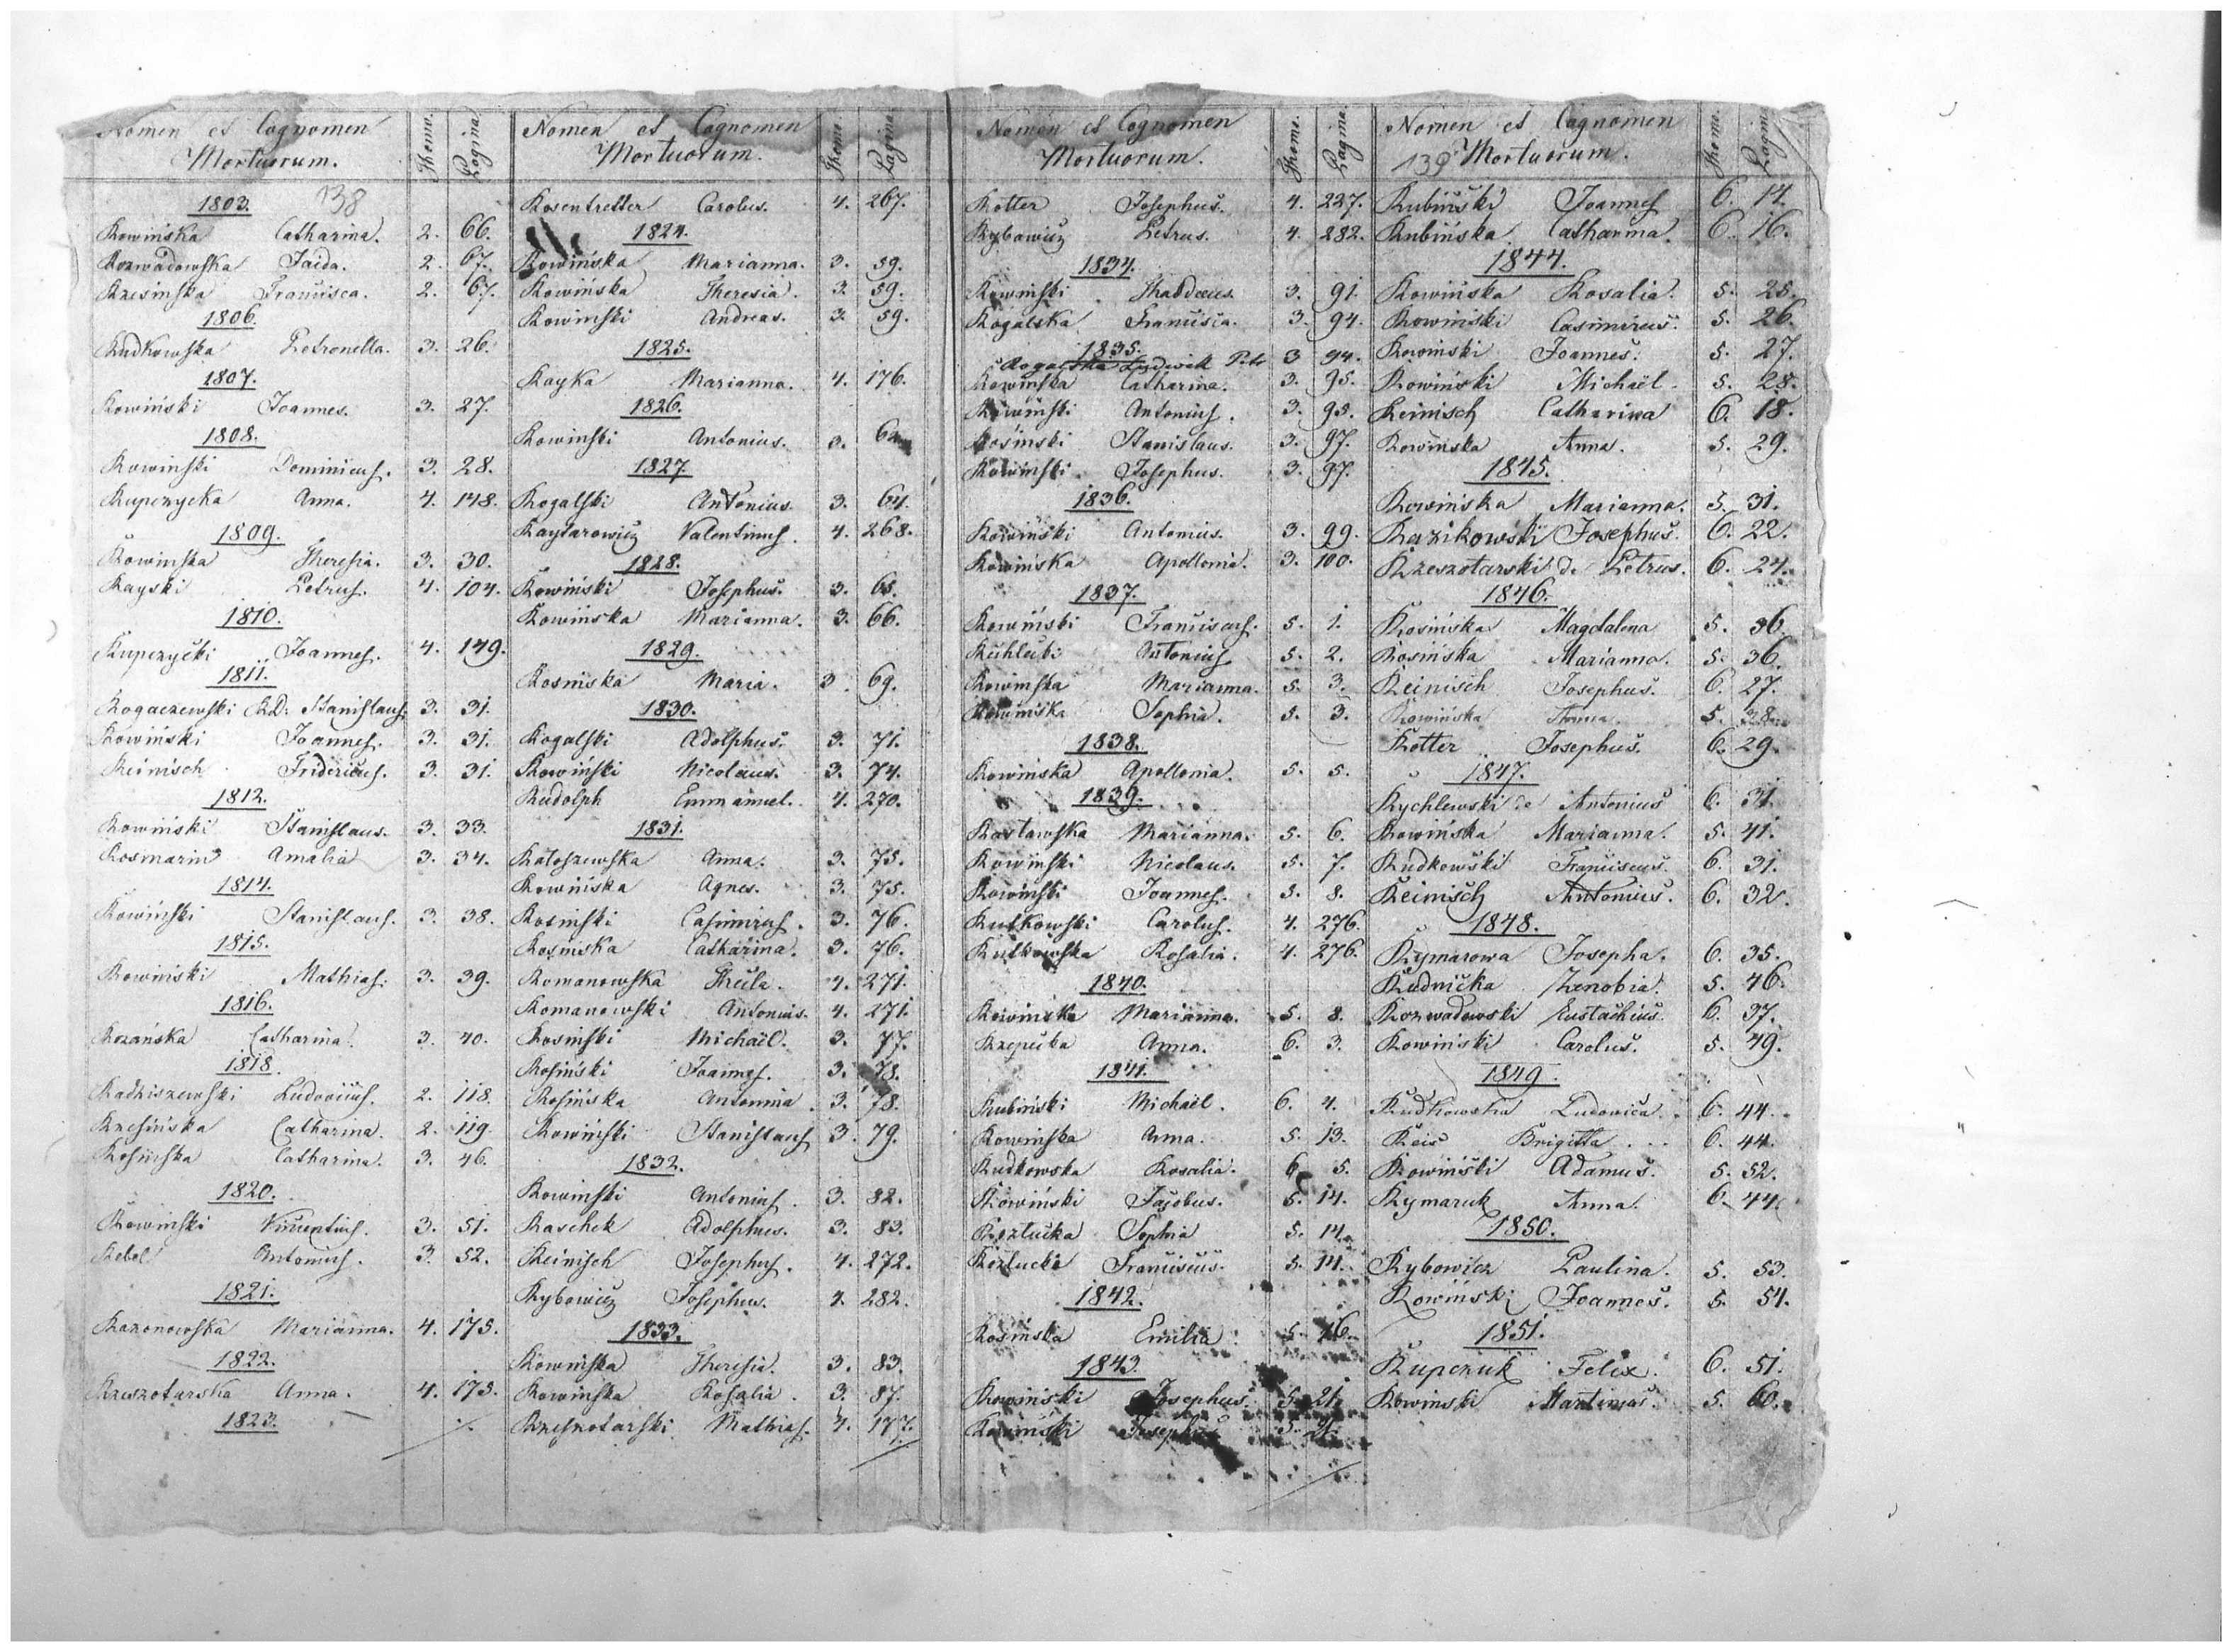 Nomen et Cognomen Mortuorum. Thomo. Pagina.
138
1803.
Rowińska Catharina. 2. 66.
Rozwadowska Jaida. 2. 67.
Rzesinska Francisca. 2. 67.
1806.
Rudkowska Petronella. 3. 26.
1807.
Rowiński Joannes. 3. 27.
1808.
Rowinski Dominicus. 3. 28.
Rupczycka Anna. 4. 148.
1809.
Rowinska Theresia. 3. 30.
Rayski Petrus. 4. 104.
1810.
Rupczyćki Joannes. 4. 149.
1811.
Rogaczewski R.D. Stanislaus 3. 31.
Rowiński Joannes. 3. 31.
Reinisch Fridericus. 3. 31.
1812.
Rowiński Stanislaus. 3. 33.
Rosmarin Amalia 3. 34.
1814.
Rowiński Stanislaus. 3. 38.
1815.
Rowiński Mathias. 3. 39.
1816.
Rozańska Catharina. 3. 40.
1818.
Radziszewski Ludovicus. 2. 118.
Rzesińska Catharina. 2. 119.
Rosińska Catharina. 3. 46.
1820.
Rowinski Vincentius. 3. 51.
Rebel Antonius. 3. 52.
1821.
Razonowska Marianna. 4. 175.
1822.
Rzeszotarska Anna. 4. 175.
1823.
Nomen et Cognomen Mortuorum. Thomo. Pagina.
Rosentretter Carolus. 4. 267.
1824.
Rowińska Marianna. 3. 59.
Rowińska Theresia. 3. 59.
Rowinski Andreas. 3. 59.
1825.
Rayka Marianna. 4. 176.
1826.
Rowinski Antonius. 3.
1827.
Rogalski Antonius. 3. 64.
Raytarowicz Valentinus. 4. 268.
1828.
Rowiński Josephus. 3. 65.
Rowińska Marianna. 3. 66.
1829.
Rosniska Maria. 3. 69.
1830.
Rogalski Adolphus. 3. 71.
Rowiński Nicolaus. 3. 74.
Rudolph Emmanuel. 4. 270.
1831.
Ratoszewska Anna. 3. 75.
Rowińska Agnes. 3. 75.
Rosinski Casimirus. 3. 76.
Rosińska Catharina. 3. 76.
Romanowska Thecla. 4. 271.
Romanowski Antonius. 4. 271.
Rosinski Michaël. 3. 77.
Rosinski Joannes. 3. 78.
Rosińska Antonina. 3. 78.
Rowiński Stanislaus 3. 79.
1832.
Rowinski Antonius. 3. 82.
Raschek Adolphus. 3. 83.
Reinisch Josephus. 4. 272.
Rybowicz Josephus. 4. 282.
1833.
Rowińska Theresia. 3. 83.
Rowińska Rosalia. 3. 87.
Rzeszotarski Mathias. 4. 177.
Nomen et Cognomen Mortuorum. Thomo. Pagina.
Rotter Josephus. 4. 237.
Rybowicz Petrus. 4. 282.
1834.
Rowinski Thaddeus. 3. 91.
Rogalska Francisca. 3. 94.
1835.
Rogalska Ludwik 3 94.
Rowińska Catharina. 3. 95.
Rowinski Antonius. 3. 95.
Rosinski Stanislaus. 3. 97.
Rowinski Josephus. 3. 97.
1836.
Rowiński Antonius. 3. 99.
Rowińska Apollonia. 3. 100.
1837.
Rowiński Franciscus. 5. 1.
Ruhlubi Antonius 5. 2.
Rowińska Marianna. 5. 3.
Rowińska Sophia. 5. 3.
1838.
Rowińska Apollonia. 5. 5.
1839.
Rostawska Marianna. 5. 6.
Rowinski Nicolaus. 5. 7.
Rowinski Joannes. 5. 8.
Rutkowski Carolus. 4. 276.
Rutkowska Rosalia. 4. 276.
1840.
Rowińska Marianna. 5. 8.
Rzepecka Anna. 6. 3.
1841.
Rubiński Michaël. 6. 4.
Rowinska Anna. 5. 13.
Rudkowska Rosalia. 6 5.
Rowiński Jacobus. 5. 14.
Rozlucka Sophia 5. 14.
Rozlucki Franciscus. 5. 14.
1842.
Rosińska Emilia 5. 16.
1843.
Rowiński Josephus. 5. 21.
Rowiński Josephus 5. 21.
Nomen et Cognomen Mortuorum. Thomo. Pagina.
139
Rubiński Joannes 6. 14.
Rubińska Catharina. 6. 16.
1844.
Rowińska Rosalia. 5. 25.
Rowiński Casimirus. 5. 26.
Rowinski Joannes. 5. 27.
Rowiński Michaël. 5. 28.
Reinisch Catharina 6. 18.
Rowińska Anna. 5. 29.
1845.
Rowińska Marianna. 5. 31.
Razikowski Josephus. 6. 22.
Rzeszotarski de Petrus. 6. 24.
1846.
Rosińska Magdalena 5. 36.
Rosińska Marianna. 5. 36.
Reinisch Josephus. 6. 27.
Rowińska Anna. 5. 38.
Rotter Josephus. 6. 29.
1847.
Rychlewski de Antonius 6. 31.
Rowińska Marianna. 5. 41.
Rudkowski Franciscus. 6. 31.
Reinisch Antonius. 6. 32.
1848.
Rymarowa Josepha. 6. 35.
Rudnicka Zenobia. 5. 46.
Rozwadowski Eustachius. 6. 37.
Rowiński Carolus. 5. 49.
1849.
Rudkowska Ludovica. 6. 44.
Reis Brigitta 6. 44.
Rowiński Adamus. 5. 52.
Rymaruk Anna. 6. 44.
1850.
Rybowicz Paulina. 5. 53.
Rowiński Joannes. 5. 54.
1851.
Rupczuk Felix. 6. 51.
Rowinski Martinus. 5. 60.